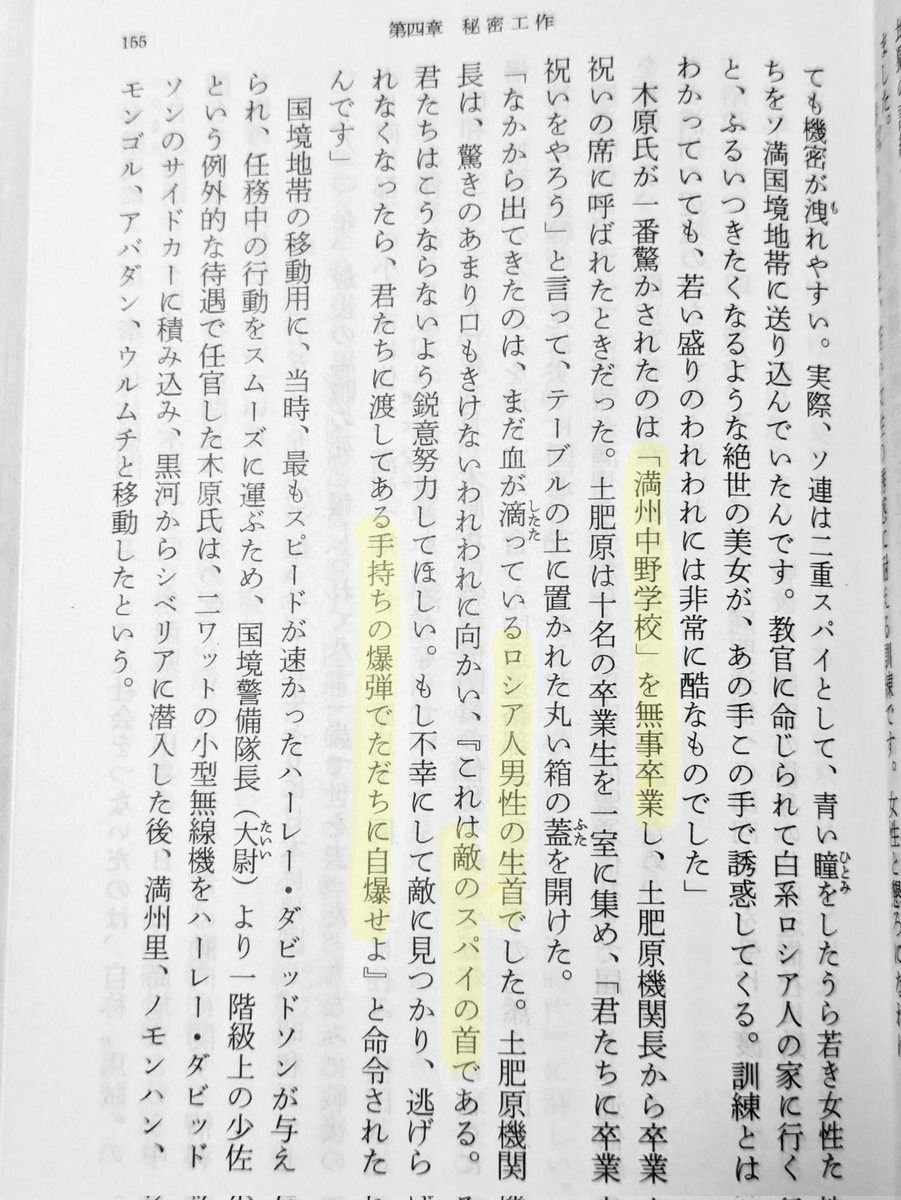 155
第四章　秘密工作
ても機密が洩れやすい。実際、ソ連は二重スパイとして、青い瞳をしたうら若き女性た
ちをソ満国境地帯に送り込んでいたんです。教官に命じられて白系ロシア人の家に行く
と、ふるいつきたくなるような絶世の美女が、あの手この手で誘惑してくる。訓練とは
わかっていても、若い盛りのわれわれには非常に酷なものでした」
　木原氏が一番驚かされたのは「満州中野学校」を無事卒業し、土肥原機関長から卒業
祝いの席に呼ばれたときだった。土肥原は十名の卒業生を一室に集め、「君たちに卒業
祝いをやろう」と言って、テーブルの上に置かれた丸い箱の蓋を開けた。
「なかから出てきたのは、まだ血が滴っているロシア人男性の生首でした。土肥原機関
長は、驚きのあまり口もきけないわれわれに向かい、『これは敵のスパイの首である。
君たちはこうならないよう鋭意努力してほしい。もし不幸にして敵に見つかり、逃げら
れなくなったら、君たちに渡してある手持ちの爆弾でただちに自爆せよ』と命令された
んです」
　国境地帯の移動用に、当時、最もスピードが速かったハーレー・ダビッドソンが与え
られ、任務中の行動をスムーズに運ぶため、国境警備隊長（大尉）より一階級上の少佐
という例外的な待遇で任官した木原氏は、二ワットの小型無線機をハーレー・ダビッド
ソンのサイドカーに積み込み、黒河からシベリアに潜入した後、満州里、ノモンハン、
モンゴル、アバダン、ウルムチと移動したという。